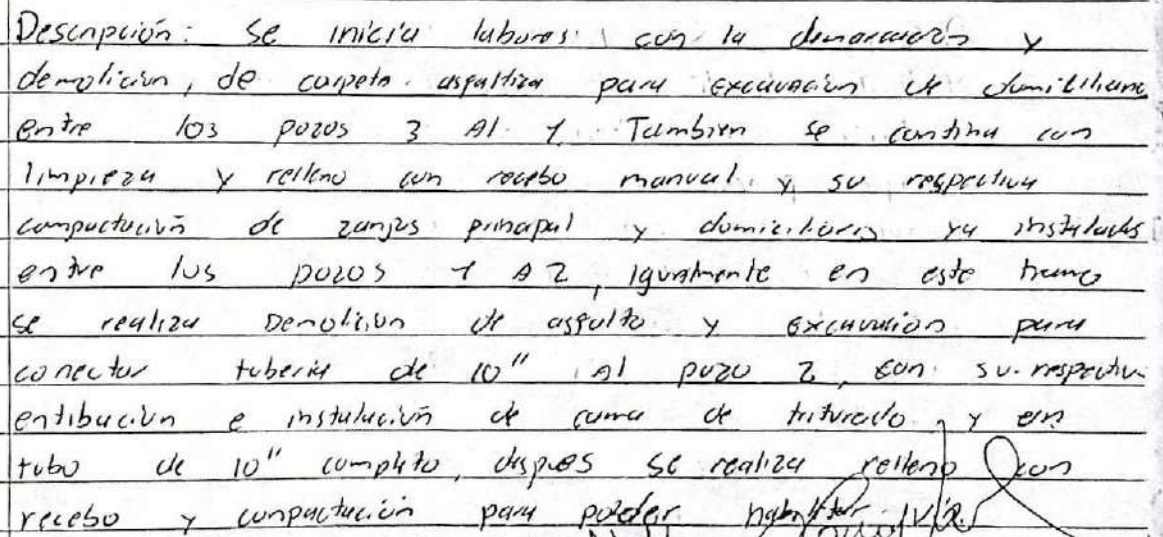 Descripción: Se inicia labores con la demarcación y
demolición, de carpeta asfaltica para excavación de domiciliaria
entre los pozos 3 Al 1. Tambien se continua con
limpieza y relleno con recebo manual y su respectiva
compactación de zanjas principal y domiciliarias ya instaladas
entre los pozos 1 A 2, igualmente en este tramo
se realiza Demolición de asfalto y Excavación para
conectar tuberia de 10" Al pozo 2, con su respectiva
entibación e instalación de cama de triturado y un
tubo de 10" completo, despues se realiza relleno con
recebo y compactación para poder habilitar via.